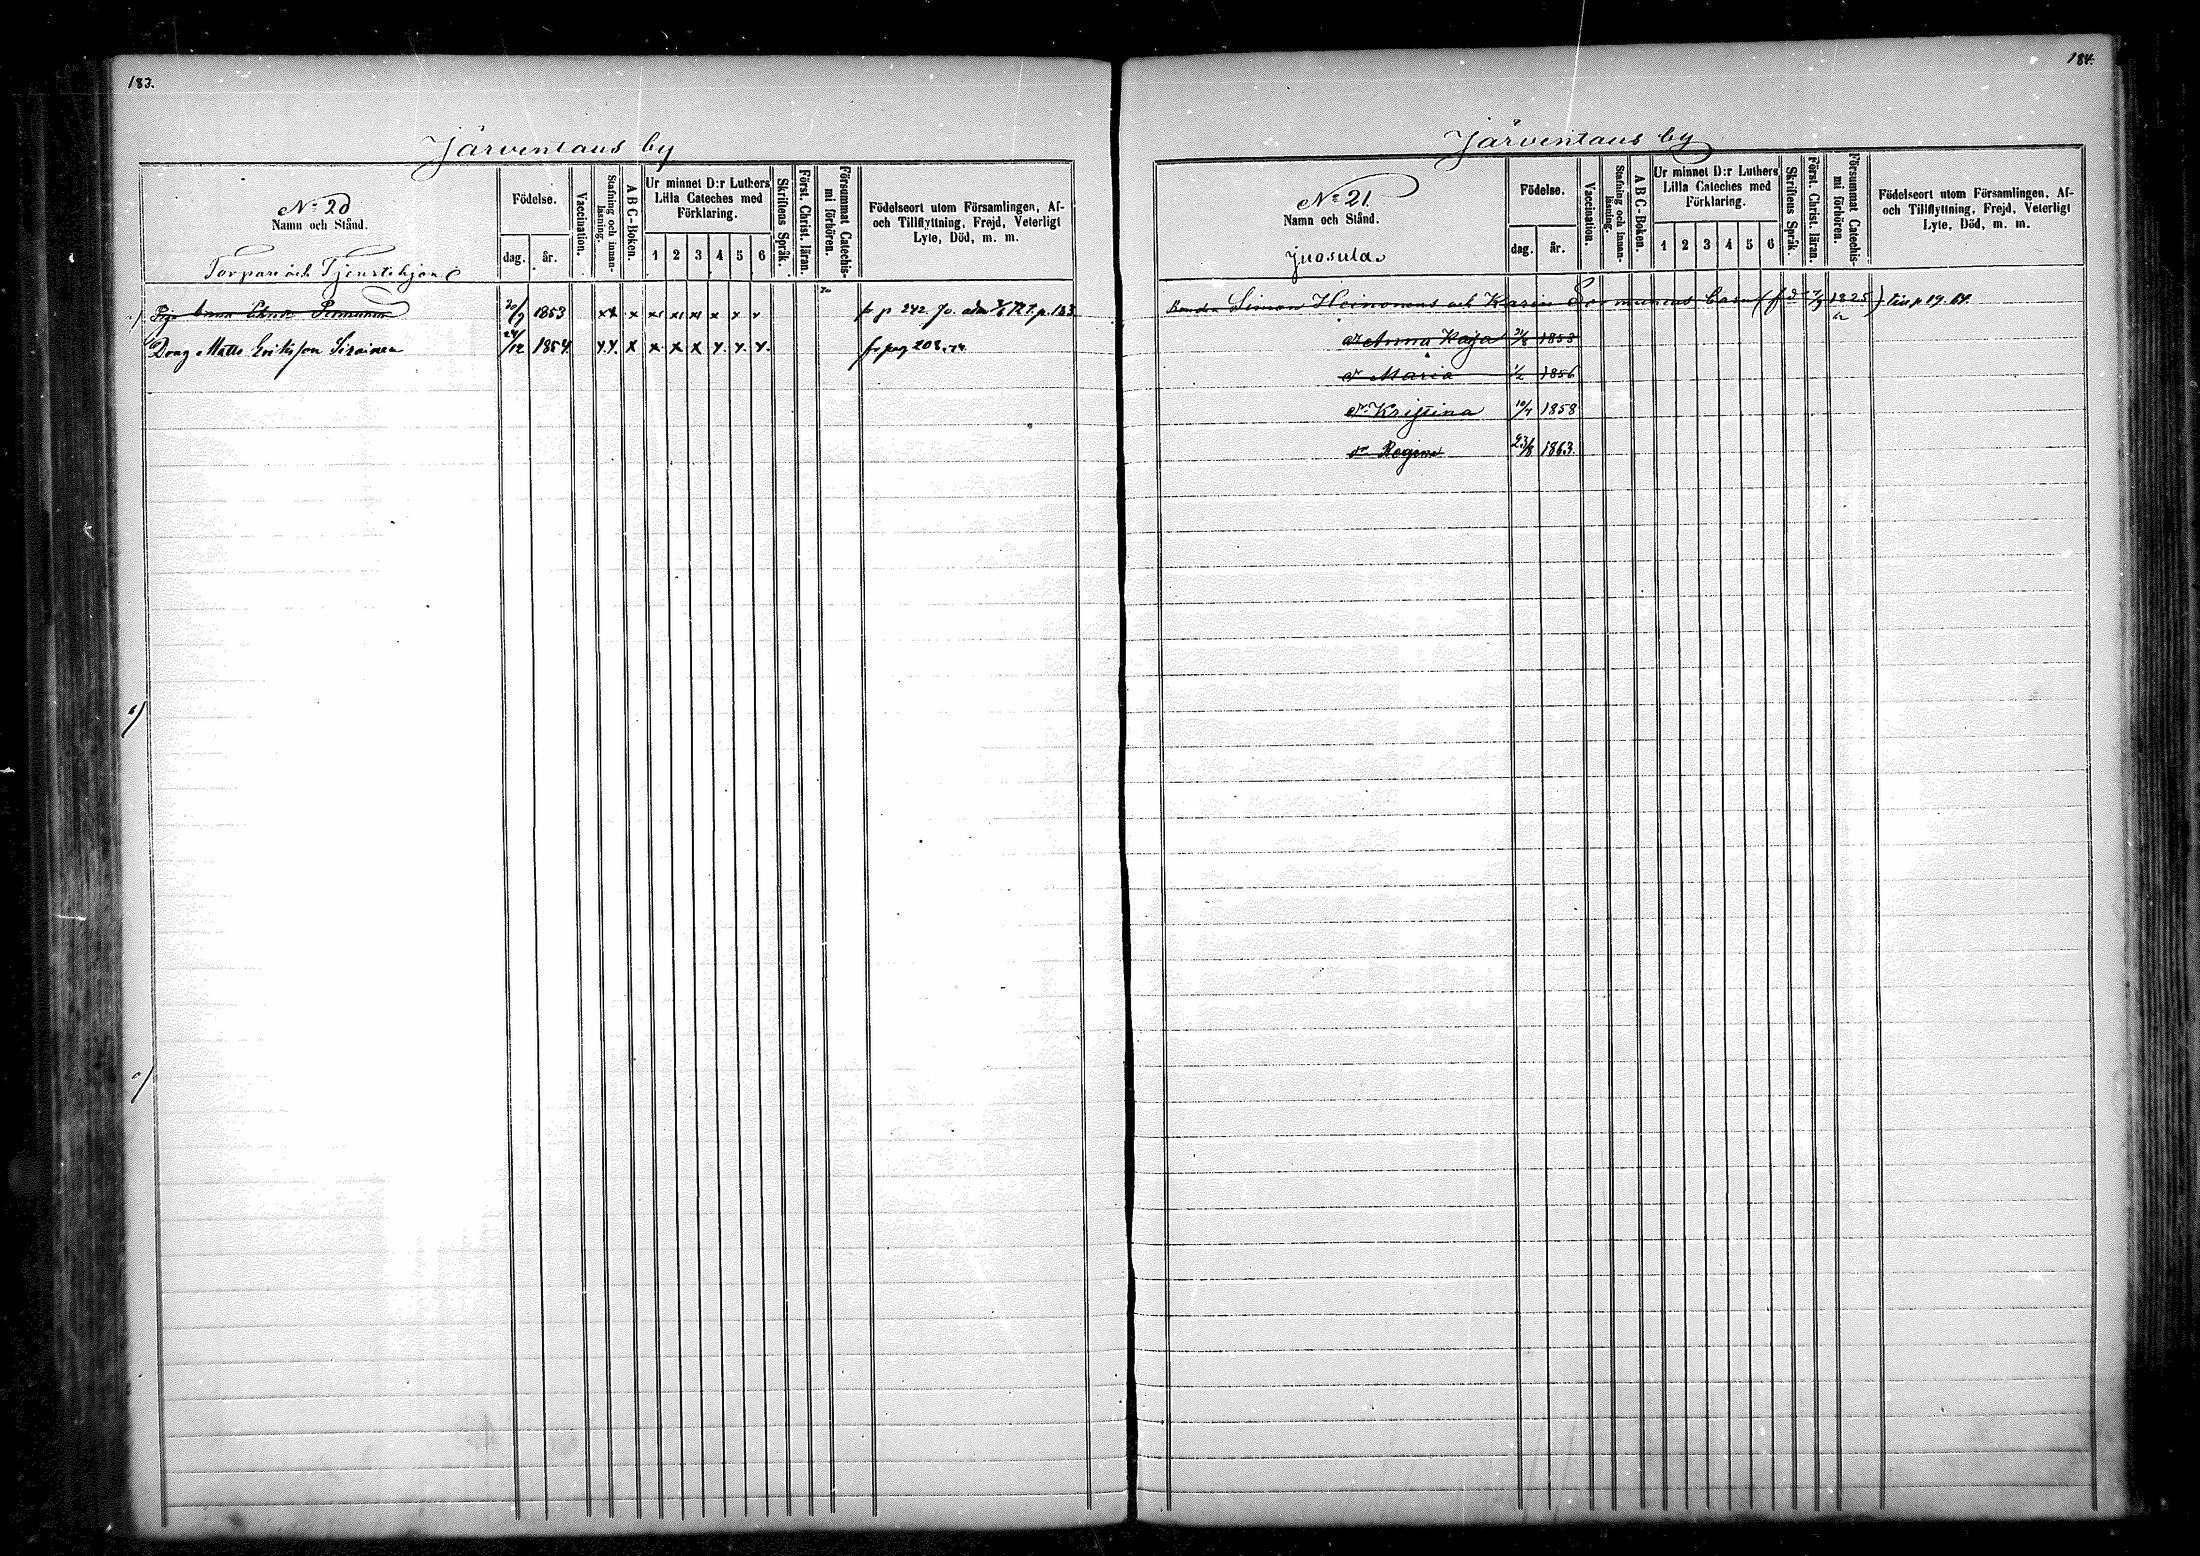 183.
Järventaus by
No 20
Namn och Stånd.
Torpare och Tjenstehjon
Födelse.
dag. år.
Vaccination.
Stafning och innanläsning.
A B C-Boken.
Ur minnet D:r Luthers
Lilla Cateches med
Förklaring.
1 2 3 4 5 6
Skriftens Språk.
Först. Christ. läran.
Försummat Catechismi förhören.
Födelseort utom Församlingen, Af-
och Tillflyttning, Frejd, Veterligt
Lyte, Död, m. m.
Piga Anna 20/9 1853 x x x x x x x fr p 242
Dräng Matts Eriksson Siroinen 24/12 1854 x x x x x x x x x fr pag 208
184.
Järventaus by
No 21.
Namn och Stånd.
Juosula
Födelse.
dag. år.
Vaccination.
Stafning och innanläsning.
A B C-Boken.
Ur minnet D:r Luthers
Lilla Cateches med
Förklaring.
1 2 3 4 5 6
Skriftens Språk.
Först. Christ. läran.
Försummat Catechismi förhören.
Födelseort utom Församlingen, Af-
och Tillflyttning, Frejd, Veterligt
Lyte, Död, m. m.
Bonden Simon Heinonens och Karin Sormunens barn (f d 1825)
dr Anna Kaja 1853
dr Maria 1/2 1856
dr Kristina 10/7 1858
dr Regina 23/8 1863